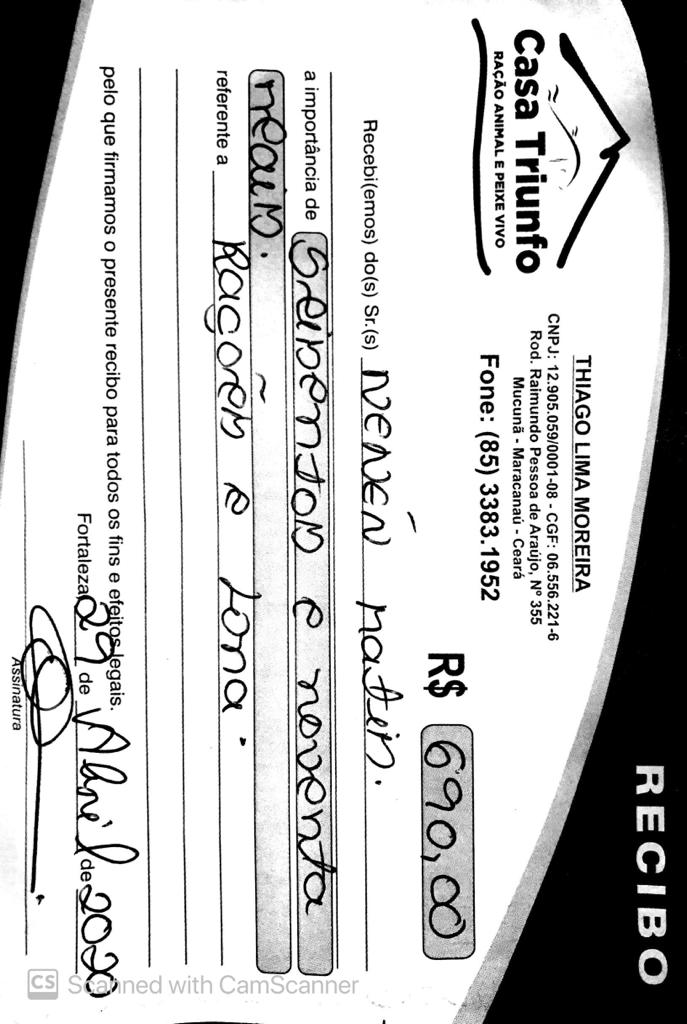 RECIBO
Casa Triunfo
RAÇÃO ANIMAL E PEIXE VIVO
THIAGO LIMA MOREIRA
CNPJ: 12.905.059/0001-08 - CGF: 06.556.221-6
Rod. Raimundo Pessoa de Araújo, Nº 355
Mucunã - Maracanaú - Ceará
Fone: (85) 3383.1952
R$ 690,00
Recebi(emos) do(s) Sr.(s) NENÉN
a importância de Seisentos e noventa
reais.
referente a Raçoẽs e Lona.
pelo que firmamos o presente recibo para todos os fins e efeitos legais.
Fortaleza, 29 de Abril de 2020
Assinatura
CS Scanned with CamScanner